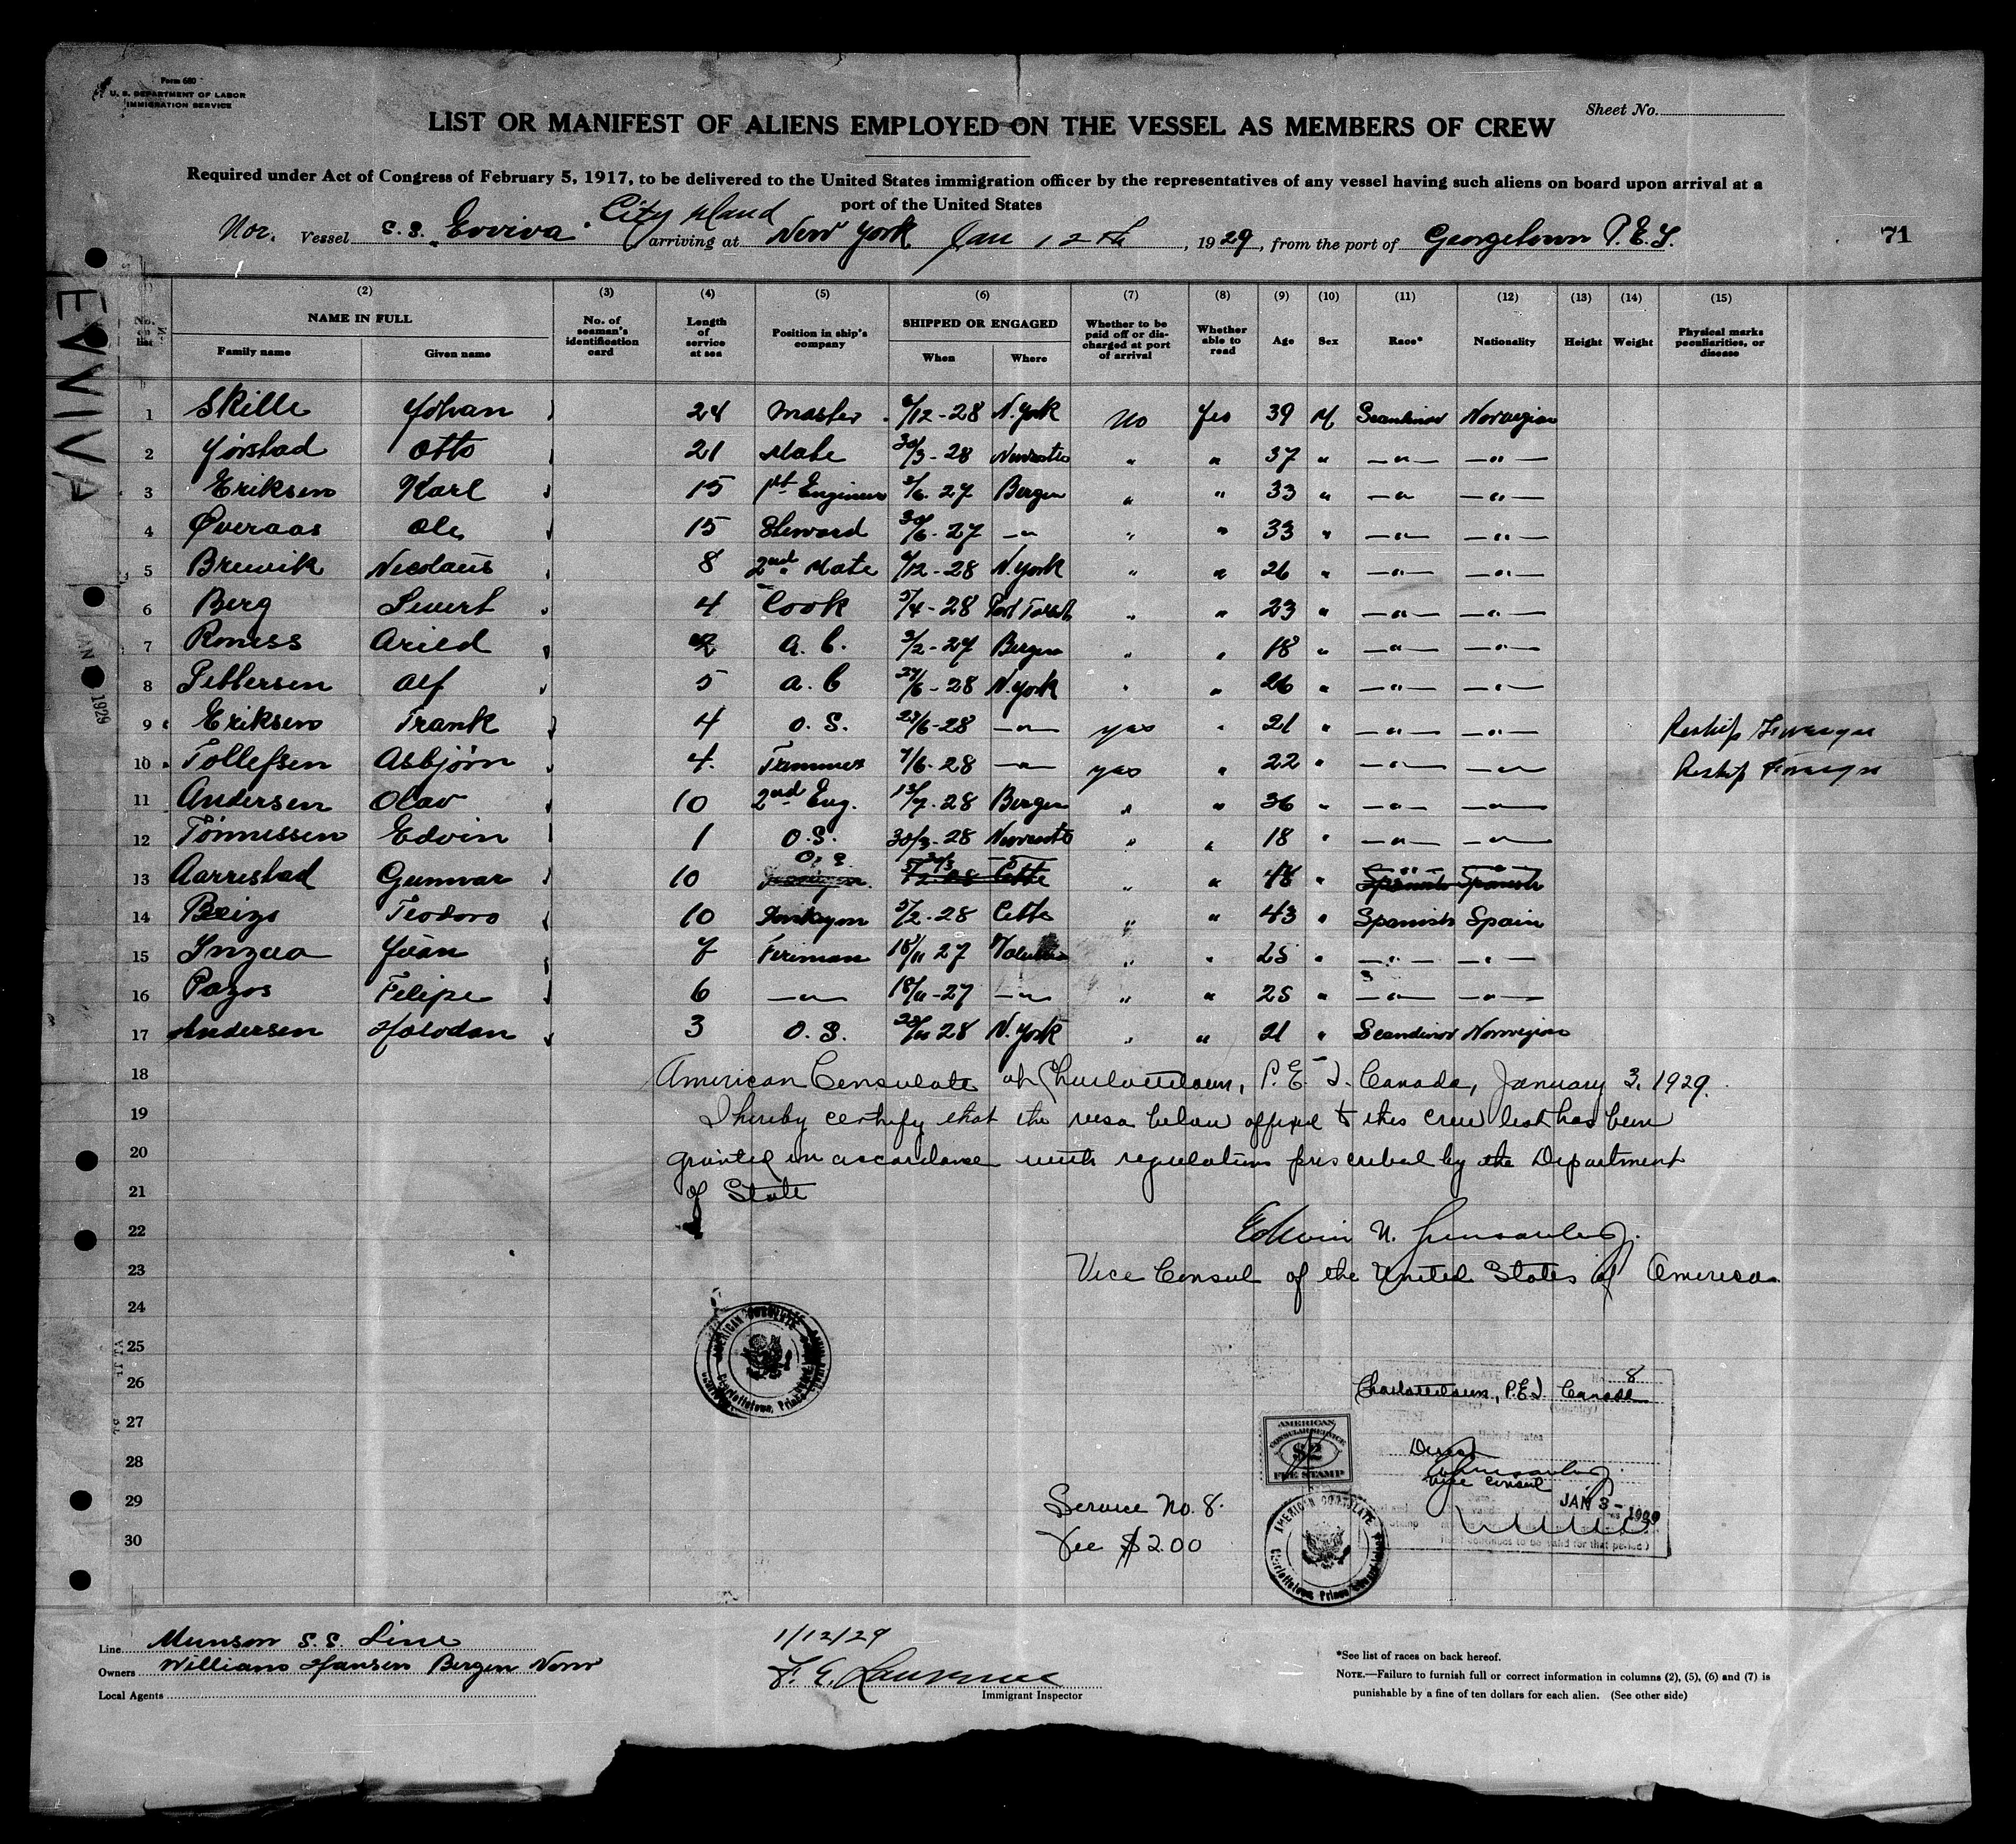 Form 680
U. S. DEPARTMENT OF LABOR
IMMIGRATION SERVICE
Sheet No.
LIST OR MANIFEST OF ALIENS EMPLOYED ON THE VESSEL AS MEMBERS OF CREW
Required under Act of Congress of February 5, 1917, to be delivered to the United States immigration officer by the representatives of any vessel having such aliens on board upon arrival at a
port of the United States
City Island
Nor. Vessel S.S. "Evviva" arriving at New York Jan 12th, 1929, from the port of Georgetown P.E.I.
71
EVVIVA
JAN 1929
(2) (3) (4) (5) (6) (7) (8) (9) (10) (11) (12) (13) (14) (15)
No. on list NAME IN FULL Family name Given name No. of seaman's identification card Length of service at sea Position in ship's company SHIPPED OR ENGAGED When Where Whether to be paid off or discharged at port of arrival Whether able to read Age Sex Race* Nationality Height Weight Physical marks peculiarities, or disease
1 Skille Johan 24 Master 6/12-28 N.York No Yes 39 M Scandinav Norwegian
2 Jørstad Otto 21 Mate 30/3-28 " " 37 " —"— —"—
3 Eriksen Karl 15 1st Engineer 3/6-27 Bergen " " 33 " —"— —"—
4 Øveraas Ole 15 Steward 30/6-27 —"— " " 33 " —"— —"—
5 Brewik Nicolaus 8 2nd Mate 6/12-28 N.York " " 26 " —"— —"—
6 Berg Sivert 4 Cook 5/4-28 Port " " 23 " —"— —"—
7 Roness Arild 2 A.B. 3/2-27 Bergen " " 18 " —"— —"—
8 Pettersen Alf 5 A.B 27/6-28 N.York " " 26 " —"— —"—
9 Eriksen Frank 4 O.S. 27/6-28 —"— yes " 21 " —"— —"— Reship Foreign
10 Tollefsen Asbjørn 4 Trimmer 7/6-28 —"— yes " 22 " —"— —"— Reship Foreign
11 Andersen Olav 10 2nd Eng. 13/7-28 Bergen " " 36 " —"— —"—
12 Tønnessen Edvin 1 O.S. 30/3-28 " " 18 " —"— —"—
13 Aarrestad Gunnar 10 O.S. 30/3 —"— 5/2-28 Cette " " 48 " —"— —"— Spanish Spanish
14 Teodoro 10 Donkeyman 5/2-28 Cette " " 43 " Spanish Spain
15 Juan 7 Fireman 18/11 27 " " 25 " —"— —"—
16 Pazos Felipe 6 —"— 18/11-27 —"— " " 25 " —"— —"—
17 Andersen Halvdan 3 O.S. 28 N.York " " 21 " Scandinav Norwegian
18 American Consulate at Charlottetown, P.E.I. Canada, January 3, 1929.
19 I hereby certify that the visa below affixed to this crew list has been
20 granted in accordance with regulations prescribed by the Department
21 of State
22 Edwin N.
23 Vice Consul of the United States of America
24
25
26
27
28
29
30
AMERICAN CONSULATE
Charlottetown, Prince Edward Island
No. 8
Charlottetown, P.E.I. Canada
(Country)
United States
Direct
Vice Consul
JAN 3- 1929
(continues to be valid for that period)
AMERICAN
CONSULAR SERVICE
$2
FEE STAMP
Service No. 8.
Fee $2.00
AMERICAN CONSULATE
Charlottetown, Prince Edward Island
Line Munson S.S. Line
Owners Williams Hansen Bergen Norw
Local Agents
1/12/29
F. E. Lawrence
Immigrant Inspector
*See list of races on back hereof.
NOTE.—Failure to furnish full or correct information in columns (2), (5), (6) and (7) is
punishable by a fine of ten dollars for each alien. (See other side)